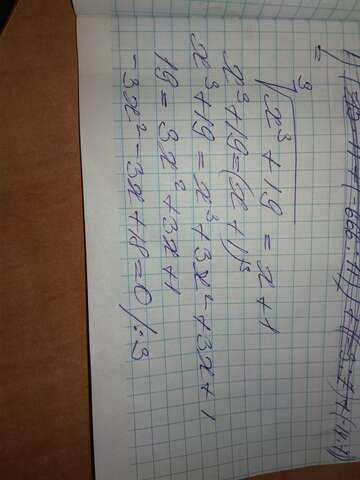 ∛(x³ + 19) = x + 1
x³ + 19 = (x + 1)³
x³ + 19 = x³ + 3x² + 3x + 1
19 = 3x² + 3x + 1
-3x² - 3x + 18 = 0 / :3